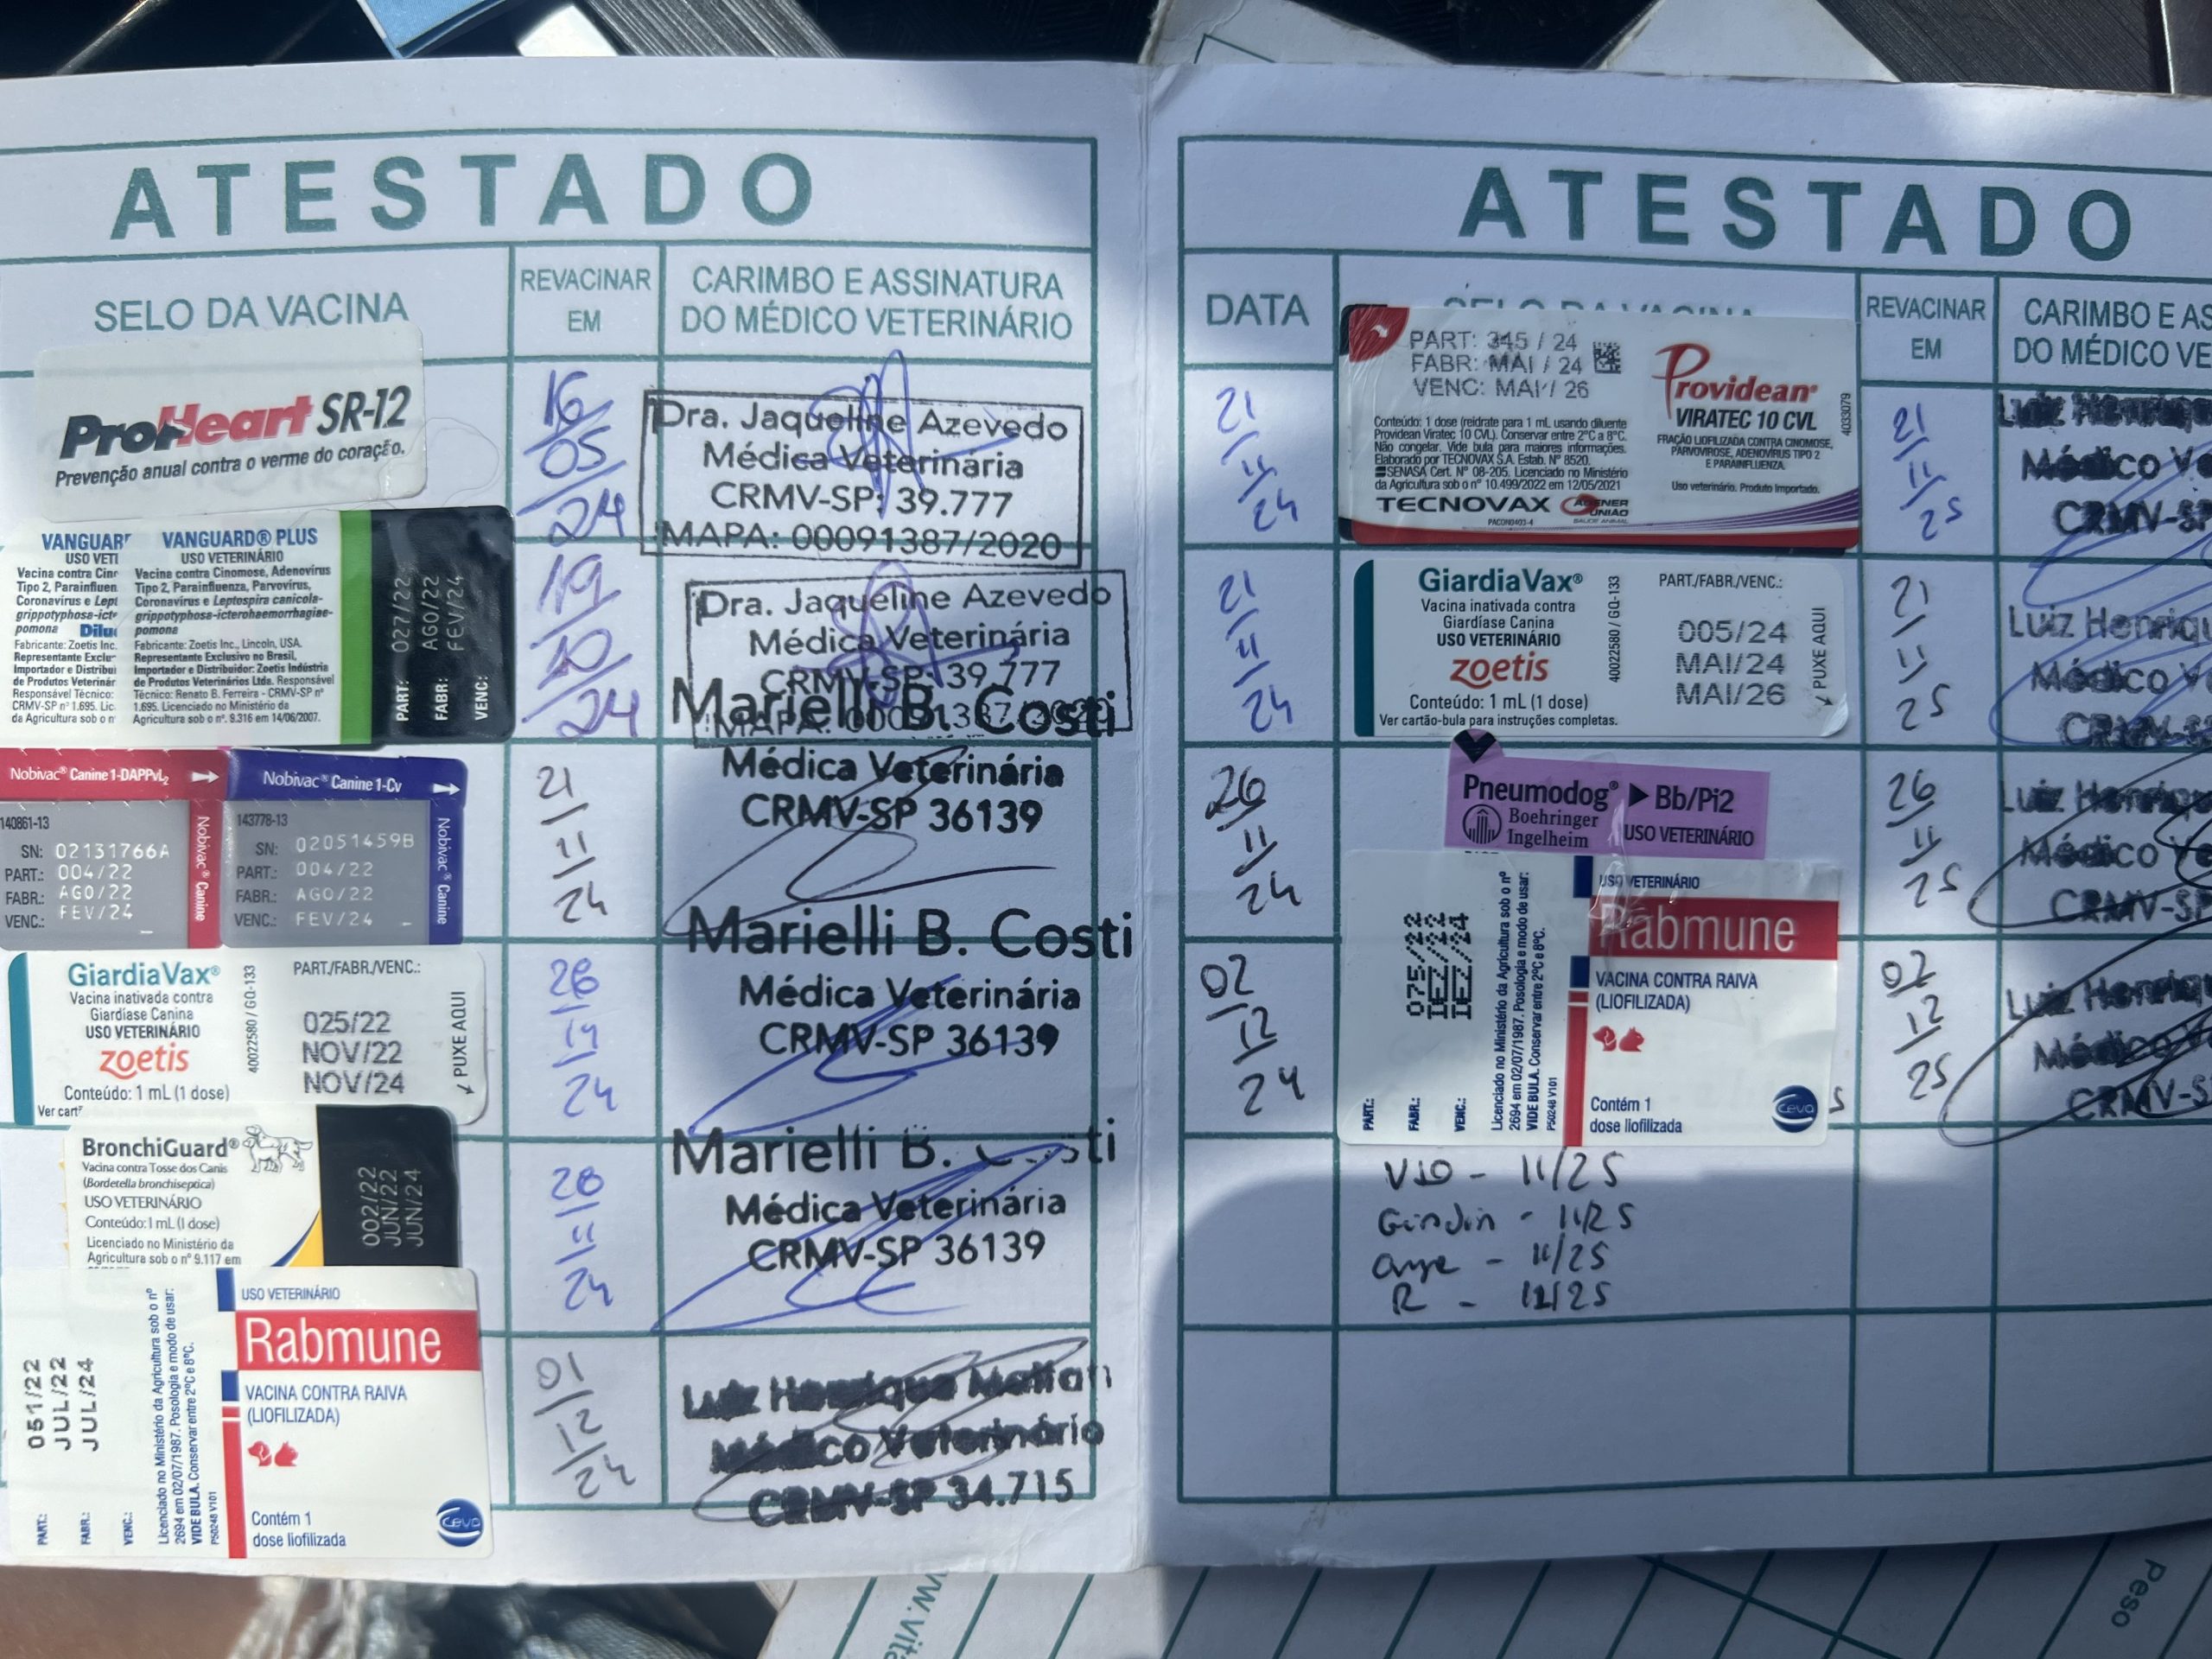 ATESTADO
SELO DA VACINA
REVACINAR
EM
CARIMBO E ASSINATURA
DO MÉDICO VETERINÁRIO
ProHeart SR-12
Prevenção anual contra o verme do coração.
16
05
24
Dra. Jaqueline Azevedo
Médica Veterinária
CRMV-SP: 39.777
MAPA: 00091387/2020
VANGUAR
USO VETI
Vacina contra Cin
Tipo 2, Parainfluen
Coronavirus e Lept
grippotyphosa-ict
pomona Dilu
Fabricante: Zoetis Inc.
Representante Exclu
Importador e Distribu
de Produtos Veterinár
Responsável Técnico:
CRMV-SP nº 1.695. Lic.
da Agricultura sob o n
VANGUARD® PLUS
USO VETERINÁRIO
Vacina contra Cinomose, Adenovírus
Tipo 2, Parainfluenza, Parvovírus,
Coronavírus e Leptospira canicola-
grippotyphosa-icterohaemorrhagiae-
pomona
Fabricante: Zoetis Inc., Lincoln, USA.
Representante Exclusivo no Brasil,
Importador e Distribuidor: Zoetis Indústria
de Produtos Veterinários Ltda. Responsável
Técnico: Renato B. Ferreira - CRMV-SP nº
1.695. Licenciado no Ministério da
Agricultura sob o nº. 9.316 em 14/06/2007.
PART: 027/22
FABR: AGO/22
VENC: FEV/24
19
10
24
Dra. Jaqueline Azevedo
Médica Veterinária
CRMV-SP: 39.777
Nobivac® Canine 1-DAPPvL2
140861-13
SN: 02131766A
PART.: 004/22
FABR.: AGO/22
VENC.: FEV/24
Nobivac® Canine
Nobivac® Canine 1-Cv
143778-13
SN: 02051459B
PART.: 004/22
FABR.: AGO/22
VENC.: FEV/24
Nobivac® Canine
21
11
24
Marielli B. Costi
Médica Veterinária
CRMV-SP 36139
GiardiaVax®
Vacina inativada contra
Giardíase Canina
USO VETERINÁRIO
zoetis
Conteúdo: 1 mL (1 dose)
Ver cart
40022580 / GQ-133
PART./FABR./VENC.:
025/22
NOV/22
NOV/24
PUXE AQUI
24
Marielli B. Costi
Médica Veterinária
CRMV-SP 36139
BronchiGuard®
Vacina contra Tosse dos Canis
(Bordetella bronchiseptica)
USO VETERINÁRIO
Conteúdo: 1 mL (1 dose)
Licenciado no Ministério da
Agricultura sob o nº 9.117 em
002/22
JUN/22
JUN/24
11
24
Marielli B.
Médica Veterinária
CRMV-SP 36139
PART.: 051/22
FABR.: JUL/22
VENC.: JUL/24
Licenciado no Ministério da Agricultura sob o nº
2694 em 02/07/1987. Posologia e modo de usar:
VIDE BULA. Conservar entre 2ºC e 8ºC.
P50248 V101
USO VETERINÁRIO
Rabmune
VACINA CONTRA RAIVA
(LIOFILIZADA)
Contém 1
dose liofilizada
Ceva
01
12
24
Luiz Henrique
Médico Veterinário
CRMV-SP 34.715
ATESTADO
DATA
SELO DA VACINA
REVACINAR
EM
CARIMBO E AS
DO MÉDICO VE
21
11
24
PART: 345 / 24
FABR: MAI / 24
VENC: MAI / 26
Conteúdo: 1 dose (reidrate para 1 mL usando diluente
Providean Viratec 10 CVL). Conservar entre 2ºC a 8ºC.
Não congelar. Vide bula para maiores informações.
Elaborado por TECNOVAX S.A. Estab. Nº 8520.
SENASA Cert. Nº 08-205. Licenciado no Ministério
da Agricultura sob o nº 10.499/2022 em 12/05/2021
TECNOVAX
AGENER
UNIÃO
SAÚDE ANIMAL
Providean®
VIRATEC 10 CVL
FRAÇÃO LIOFILIZADA CONTRA CINOMOSE,
PARVOVIROSE, ADENOVÍRUS TIPO 2
E PARAINFLUENZA.
Uso veterinário. Produto Importado.
4033079
21
11
25
Luiz Henriq
Médico Ve
CRMV-S
21
11
24
GiardiaVax®
Vacina inativada contra
Giardíase Canina
USO VETERINÁRIO
zoetis
Conteúdo: 1 mL (1 dose)
Ver cartão-bula para instruções completas.
40022580 / GQ-133
PART./FABR./VENC.:
005/24
MAI/24
MAI/26
PUXE AQUI
21
11
25
Luiz Henriqu
Médico Ve
CRMV-S
26
11
24
Pneumodog® Bb/Pi2
Boehringer
Ingelheim
USO VETERINÁRIO
26
11
25
Luiz Henriq
Médico Ve
CRMV-S
02
12
24
PART.: 075/22
FABR.: DEZ/22
VENC.: DEZ/24
Licenciado no Ministério da Agricultura sob o nº
2694 em 02/07/1987. Posologia e modo de usar:
VIDE BULA. Conservar entre 2ºC e 8ºC.
P50248 V101
USO VETERINÁRIO
Rabmune
VACINA CONTRA RAIVA
(LIOFILIZADA)
Contém 1
dose liofilizada
Ceva
02
12
25
Luiz Henriq
Médico Ve
CRMV-S
V10 - 11/25
- 11/25
- 11/25
R - 12/25
Peso